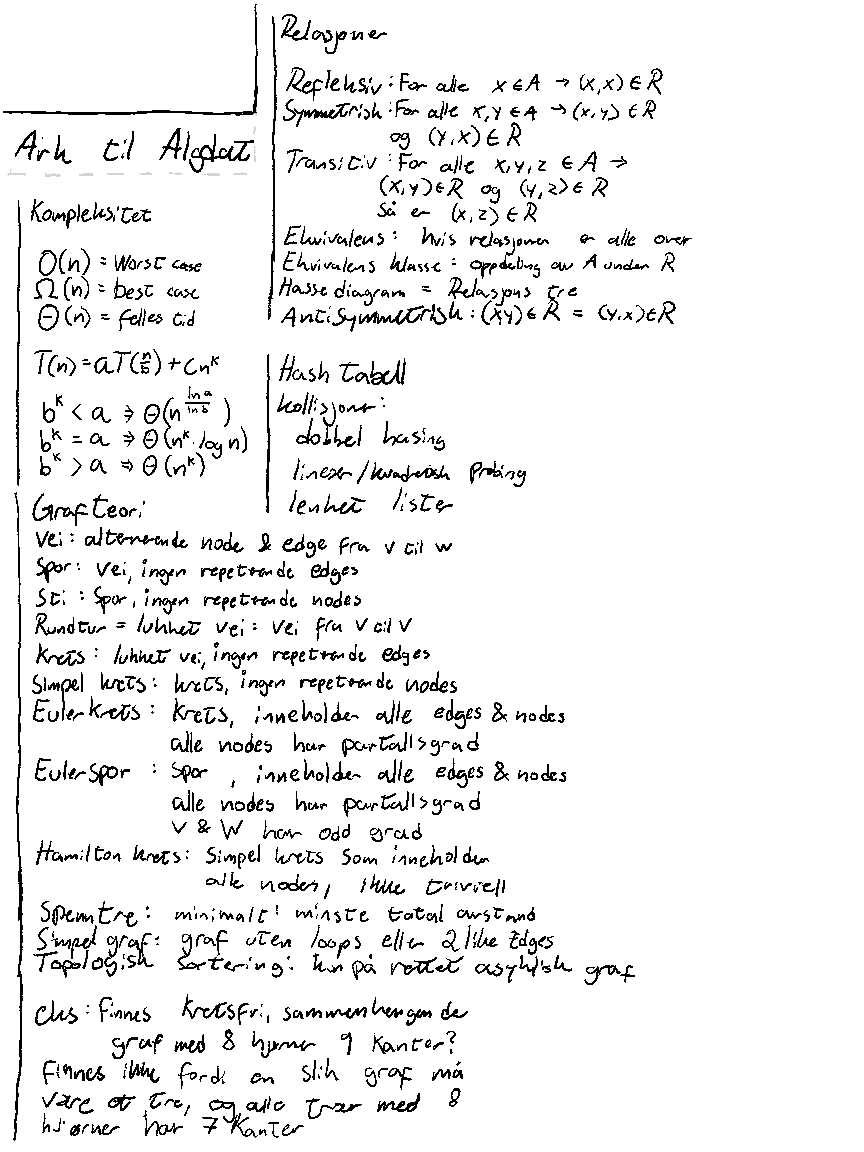 Ark til Algdat
Kompleksitet
O(n) = Worst case
Ω(n) = best case
Θ(n) = felles tid
T(n) = aT(n/b) + Cn^k
b^k < a ⇒ Θ(n^(ln a/ln b))
b^k = a ⇒ Θ(n^k · log n)
b^k > a ⇒ Θ(n^k)
Relasjoner
Refleksiv : For alle x ∈ A → (x,x) ∈ R
Symmetrisk : For alle x,y ∈ A → (x,y) ∈ R
og (y,x) ∈ R
Transitiv : For alle x,y,z ∈ A →
(x,y) ∈ R og (y,z) ∈ R
Så er (x,z) ∈ R
Ekvivalens : hvis relasjonen er alle over
Ekvivalens klasse : oppdeling av A under R
Hasse diagram = Relasjons tre
AntiSymmetrisk : (x,y) ∈ R = (y,x) ∈ R
Hash tabell
kollisjoner:
dobbel hasing
lineær/kvadratisk Probing
lenket lister
Graf teori
Vei : alternerende node & edge fra v til w
Spor : Vei, ingen repeterende edges
Sti : Spor, ingen repeterende nodes
Rundtur = lukket vei : vei fra V til V
Krets : lukket vei, ingen repeterende edges
Simpel krets : krets, ingen repeterende nodes
Euler Krets : Krets, inneholder alle edges & nodes
alle nodes har partallsgrad
Euler Spor : Spor , inneholder alle edges & nodes
alle nodes har partallsgrad
V & W har odd grad
Hamilton krets : Simpel krets som inneholder
alle nodes, ikke trivriell
Spenntre : minimalt : minste total avstand
Simpel graf : graf uten loops eller 2 like Edges
Topologisk Sortering : kun på rettet asyklisk graf
eks : Finnes Kretsfri, sammenhengende
graf med 8 hjørner 9 Kanter?
Finnes ikke fordi en slik graf må
være et tre, og alle trær med 8
hjørner har 7 Kanter